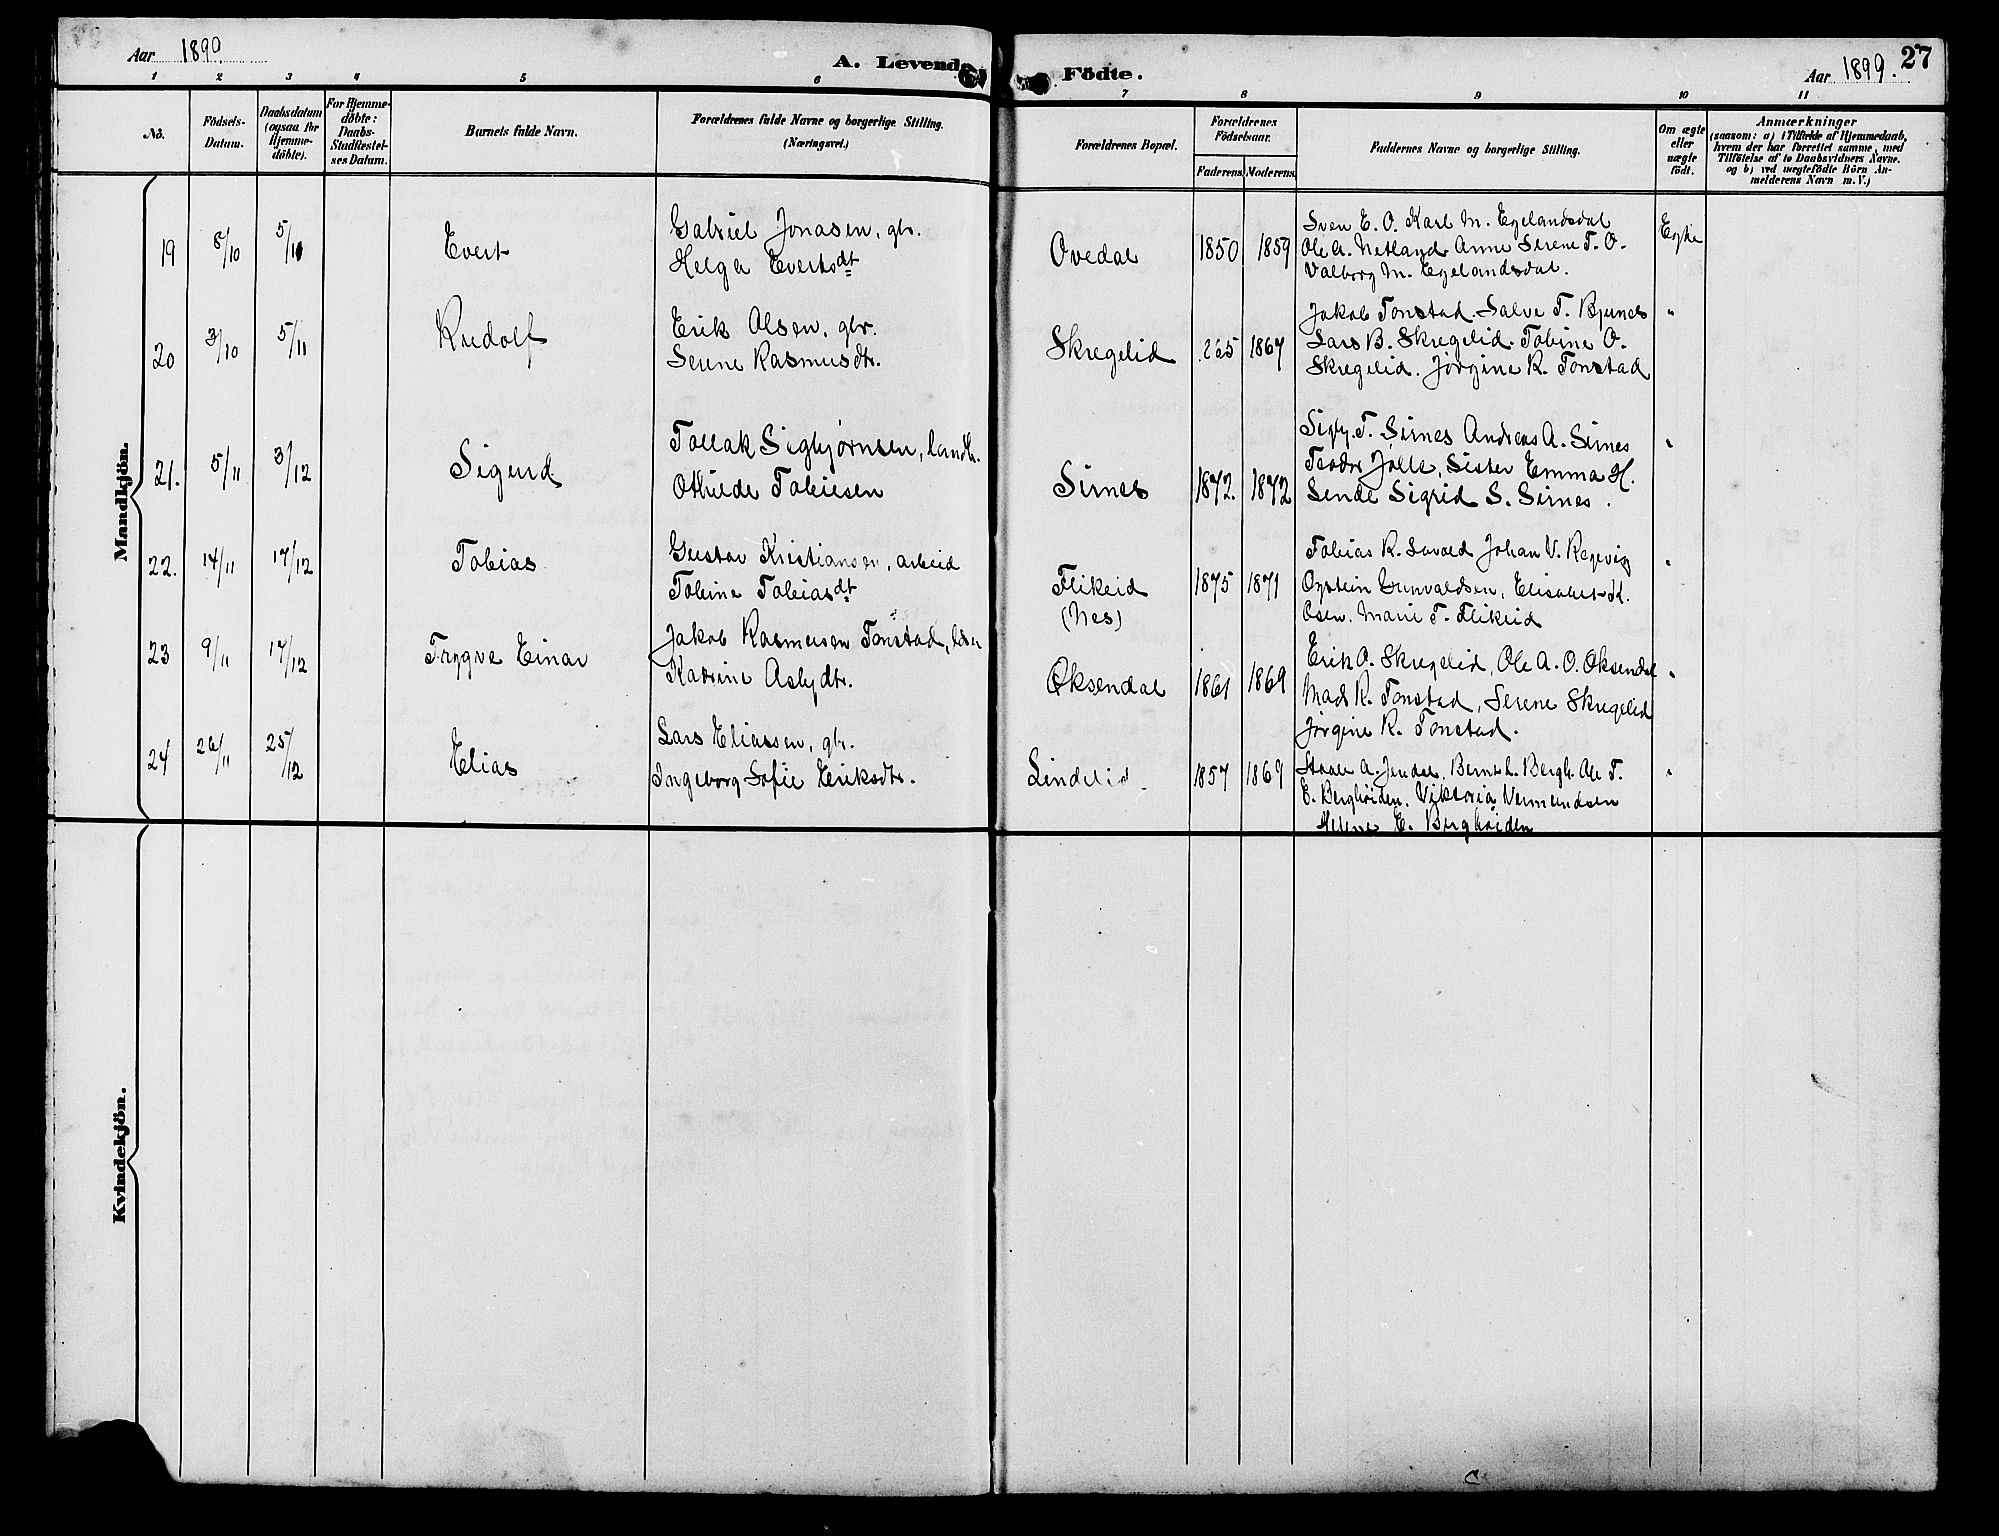 Aar 1899.
A. Levende
Födte.
Aar 1899.
27
1 2 3 4 5 6 7 8 9 10 11
No.
Födsels-
Datum.
Daabsdatum
(ogsaa for
Hjemme-
döbte).
For Hjemme-
döbte:
Daabs-
Stadfæstel-
ses Datum.
Barnets fulde Navn.
Forældrenes fulde Navne og borgerlige Stilling.
(Næringsvei.)
Forældrenes Bopæl.
Forældrenes
Födselsaar.
Faderens. Moderens.
Faddernes Navne og borgerlige Stilling.
Om ægte
eller
uægte
födt.
Anmærkninger
(saasom: a) i Tilfælde af Hjemmedaab,
hvem der har forrettet samme, med
Tilföielse af to Daabsvidners Navne.
og b) ved uægtefödte Börn An-
melderens Navn m.V.)
Mandkjön.
19 8/10 5/11 Evert
Gabriel Jonasen, gbr.
Helga Evertsdt
Ovedal 1850 1859
Sven E. O. Karl M. Egelandsdal
Ole A. Netland Anne Serene T. O.
Valborg M. Egelandsdal.
Egte
20 3/10 5/11 Rudolf
Erik Olsen, gbr.
Serene Rasmusdtr.
Skregelid 1867
Jakob Tonstad. Salve T. Bjunes
Lars B. Skregelid. Tobine O.
Skregelid. Jørgine R. Tonstad
"
21. 5/11 3/12 Sigurd
Tollak Sigbjørnsen, landh.
Othilde Tobiesen
Sirnes 1872. 1872
Sigbj. T. Sirnes Andreas A. Sirnes
Teodor Jølle, Sister Emma H.
Sende Sigrid S. Sirnes.
"
22. 14/11 17/12 Tobias
Gustav Kristiansen, arbeid
Tobine Tobiasdt
Flikeid
(Nes)
1875 1871
Tobias R. Johan V. Regevig
Øystein Gunvaldsen, Elisabet K.
Osen. Marie T. Flikeid
"
23 9/11 17/12 Trygve Einar
Jakob Rasmusen Tonstad,
Katrine Asbjdtr.
Øksendal 1861 1869
Erik O. Skregelid, Ole A. O. Øksendal
Mads R. Tonstad, Serene Skregelid
Jørgine R. Tonstad.
"
24 26/11 25/12 Elias
Lars Eliassen, gbr.
Ingeborg Sofie Eriksdtr.
Lindelid. 1857 1869
Staale A. Bernt L. Bergh. Ole T.
E. Bergheiden. Viktoria Vermundsen
Helene E. Bergheiden
"
Kvindekjön.